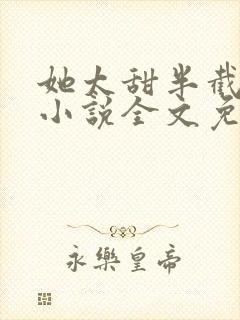 她太甜半截
小說全文免
永樂皇帝